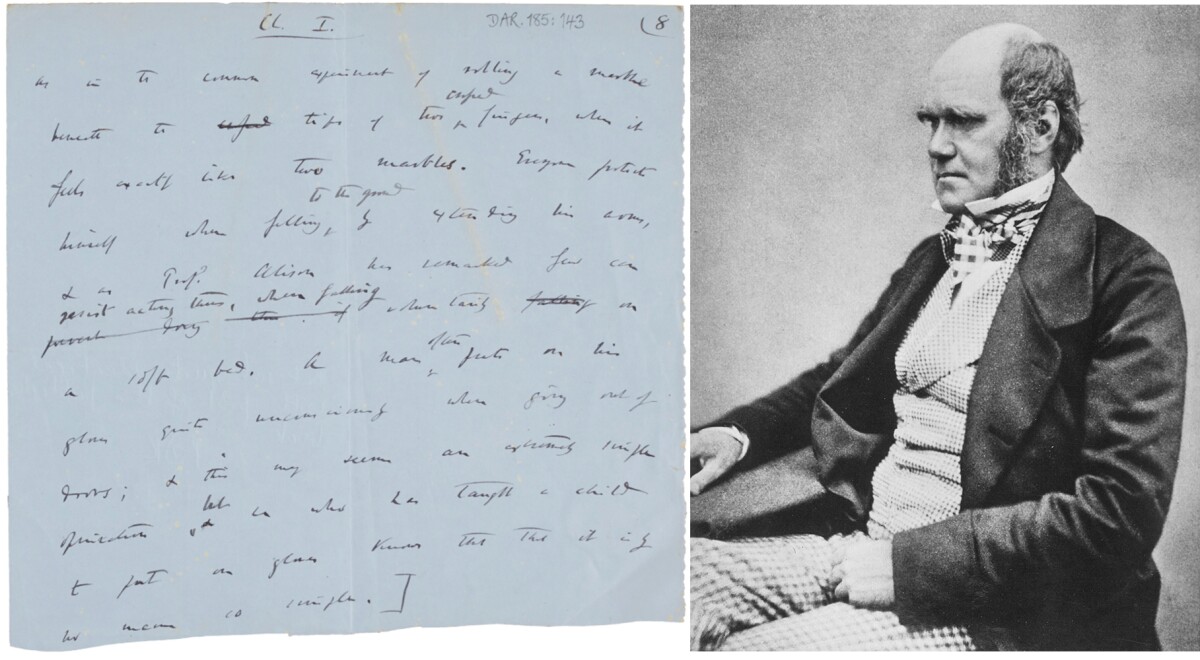 Ch. I. DAR.185:143 (8
as in the common experiment of rolling a marble
crossed
beneath the tips of two fingers, when it
feels exactly like two marbles. Everyone protects
to the ground
himself when falling, by extending his arms,
& as Prof. Alison has remarked few can
resist acting thus, when falling
prevent doing voluntarily falling on
a soft bed. A man often puts on his
gloves quite unconsciously when going out of
doors; & this may seem an extremely simple
operation but he who has taught a child
to put on gloves knows that this it is by
no means so simple.]